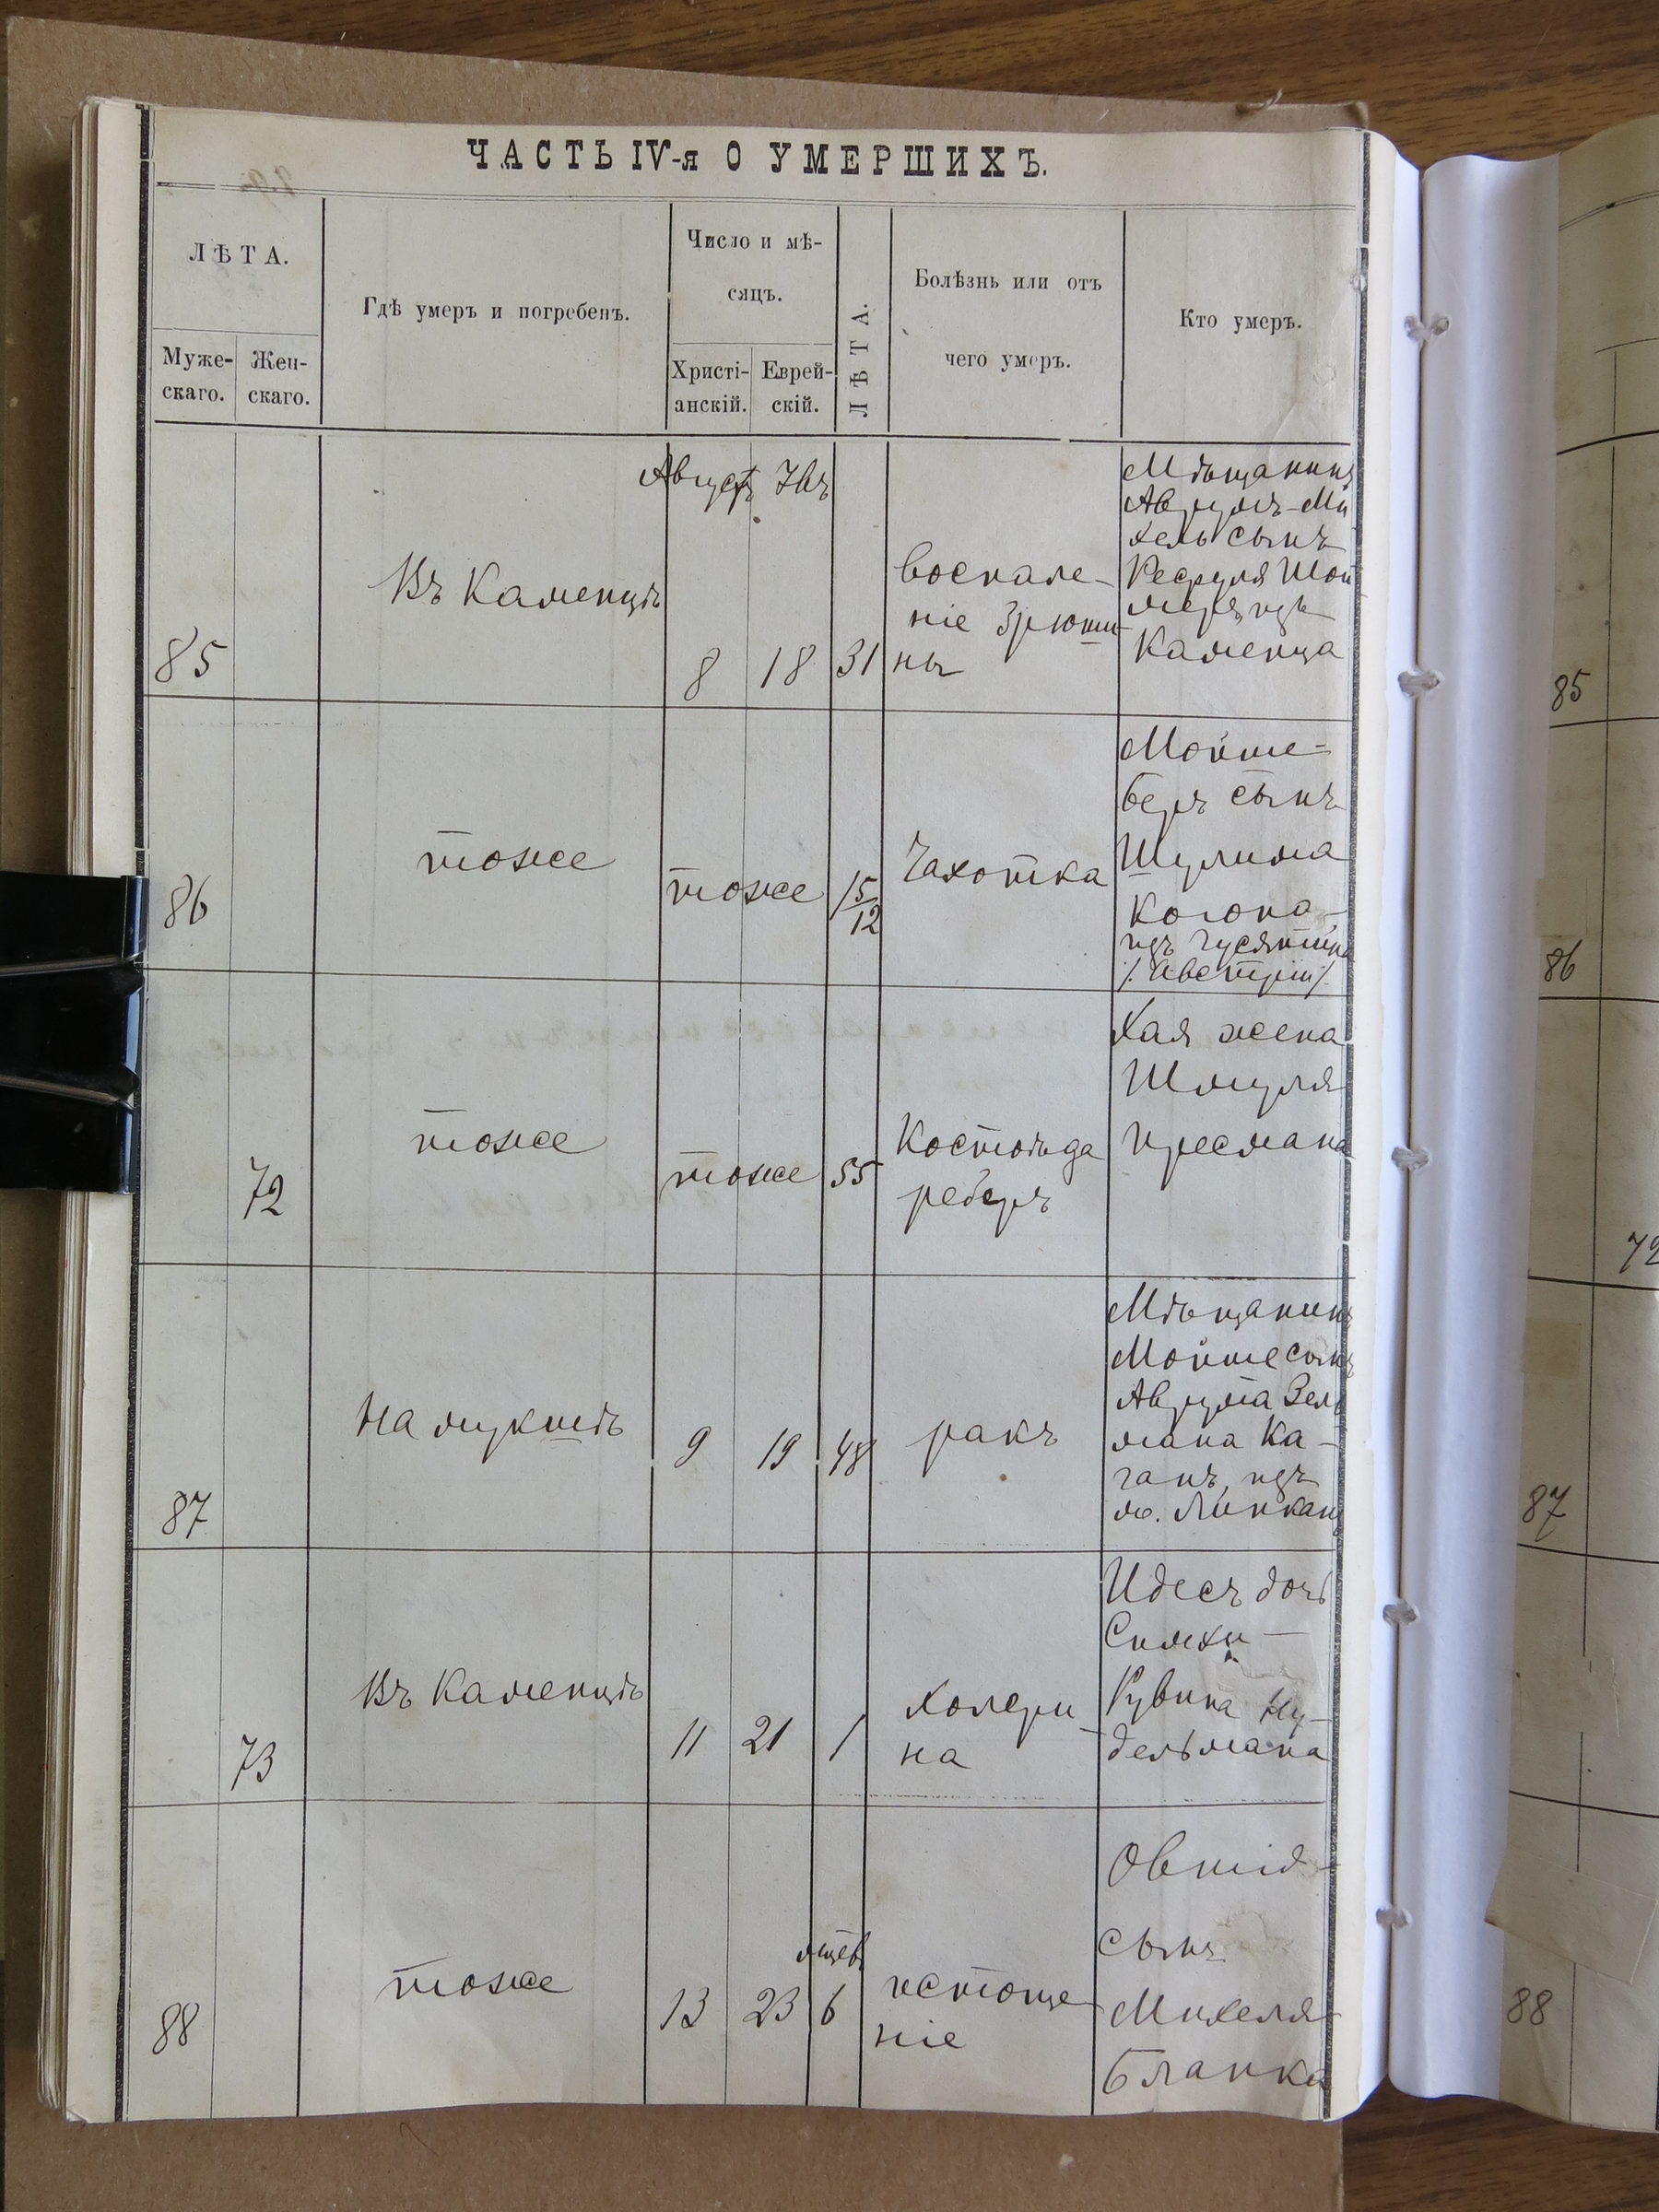 ЧАСТЬ IV-я О УМЕРШИХЪ.
ЛѢТА.
Муже-
скаго.
Жен-
скаго.
Гдѣ умеръ и погребенъ.
Число и мѣ-
сяцъ.
Христі-
анскій.
Еврей-
скій.
ЛѢТА.
Болѣзнь или отъ
чего умеръ.
Кто умеръ.
Августъ
85
Въ Каменцѣ
8
18
31
воспале-
ніе
ны
Мѣщанинъ
Аврумъ-Ми
хель сынъ
изъ
Каменца
86
тоже
тоже
15/12
Чахотка
Мойше-
Беръ сынъ
Шулима
Когона
изъ Гусятина
/. Австріи/.
72
тоже
тоже
55
Костоѣда
реберъ
Хая жена
Шмуля
Кресмана
87
9
19
48
ракъ
Мѣщанинъ
Мойше сынъ
Аврума Зель
мана Ка-
ганъ, изъ
м. Липканъ
73
Въ Каменцѣ
11
21
1
Холери
на
Идесъ дочь
Симхи-
Рувина Ну-
дельмана
88
тоже
13
23
мцевъ
6
истоще
ніе
Овшія-
сынъ
Михеля
Бланка
85
86
72
87
88